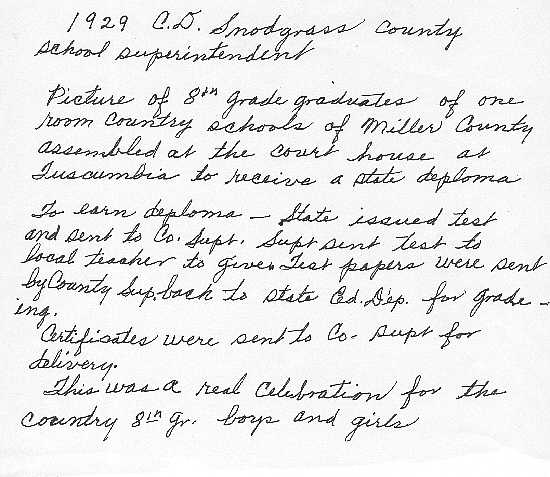 1929 C.D. Snodgrass County
school superintendent
Picture of 8th grade graduates of one
room Country schools of Miller County
assembled at the court house at
Tuscumbia to receive a state deploma
To earn deploma – State issued test
and sent to Co. Supt. Supt sent test to
local teacher to given. Test papers were sent
by County Sup. back to state Ed. Dep. for grade-
ing.
Certifisates were sent to Co- Supt for
delivery.
This was a real Celebration for the
country 8th gr. boys and girls